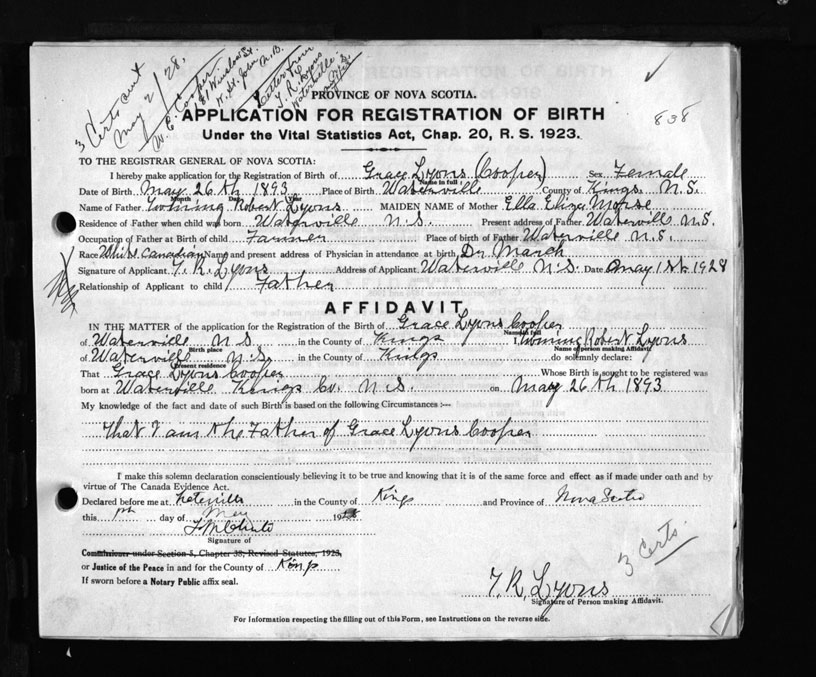 3 Certs sent
May 2/28.
W. E. Cooper
81 Winslow St.
W. St. John N.B.
Letter from
T. R. Lyons
Waterville
PROVINCE OF NOVA SCOTIA.
APPLICATION FOR REGISTRATION OF BIRTH
838
Under the Vital Statistics Act, Chap. 20, R. S. 1923.
TO THE REGISTRAR GENERAL OF NOVA SCOTIA:
I hereby make application for the Registration of Birth of Grace Lyons (Cooper) Sex Female
Name in full
Date of Birth May 26th 1893 Place of Birth Waterville County of Kings N.S.
Month Day Year
Name of Father Robert Lyons MAIDEN NAME of Mother Ella Eliza Morse
Residence of Father when child was born Waterville N.S. Present address of Father Waterville N.S.
Occupation of Father at Birth of child Farmer Place of birth of Father Waterville N.S.
Race White Canadian Name and present address of Physician in attendance at birth Dr. March
Signature of Applicant T. R. Lyons Address of Applicant Waterville N.S. Date May 1st 1928
Relationship of Applicant to child Father
AFFIDAVIT
IN THE MATTER of the application for the Registration of the Birth of Grace Lyons Cooper
Name in full
of Waterville N S in the County of Kings I, Robert Lyons
Birth place Name of person making Affidavit
of Waterville N.S. in the County of Kings do solemnly declare:
Present residence
That Grace Lyons Cooper Whose Birth is sought to be registered was
born at Waterville Kings Co. N.S. on May 26th 1893
My knowledge of the fact and date of such Birth is based on the following Circumstances :—
That I am the Father of Grace Lyons Cooper
I make this solemn declaration conscientiously believing it to be true and knowing that it is of the same force and effect as if made under oath and by
virtue of The Canada Evidence Act.
Declared before me at Waterville in the County of Kings and Province of Nova Scotia
this day of May 1928
Signature of
Commissioner under Section 5, Chapter 38, Revised Statutes, 1923,
or Justice of the Peace in and for the County of Kings
3 Certs.
If sworn before a Notary Public affix seal.
T. R. Lyons
Signature of Person making Affidavit.
For Information respecting the filling out of this Form, see Instructions on the reverse side.